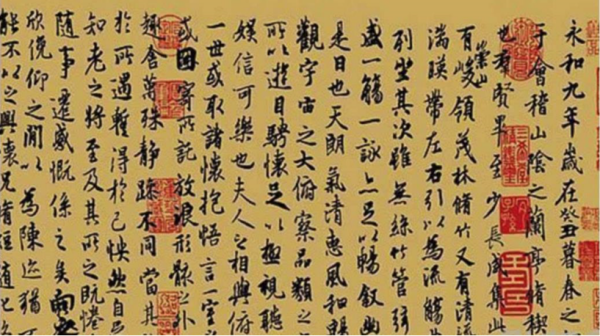 永和九年歲在癸丑暮春之
于會稽山陰之蘭亭脩稧
也羣賢畢至少長咸集此
有崇山峻領茂林脩竹又有清流
湍暎帶左右引以為流觴
列坐其次雖無絲竹管弦
盛一觴一詠亦足以暢叙幽
是日也天朗氣清惠風和暢
觀宇宙之大俯察品類之
所以遊目騁懷足以極視聽
娛信可樂也夫人之相與俯
一世或取諸懷抱悟言一室
或因寄所託放浪形骸之外
趣舍萬殊靜躁不同當其
於所遇暫得於己怏然自
知老之將至及其所之既惓
隨事遷感慨係之矣向
欣俛仰之閒以為陳迹猶不
能不以之興懷況脩短隨化